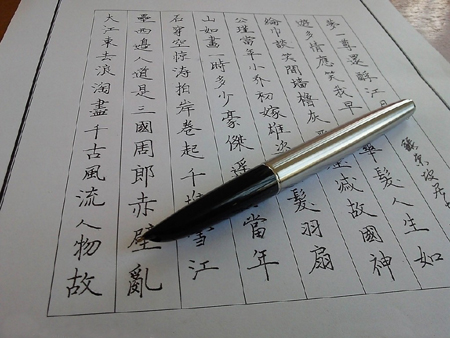 大江東去浪淘盡千古風流人物故
壘西邊人道是三國周郎赤壁亂
石穿空惊涛拍岸卷起千雪江
山如畫一時多少豪傑遥當年
公瑾當年小乔初嫁雄髮羽扇
綸巾談笑間墙橹灰減故國神
遊多情應笑我早華髮人生如
夢一尊還酹江月